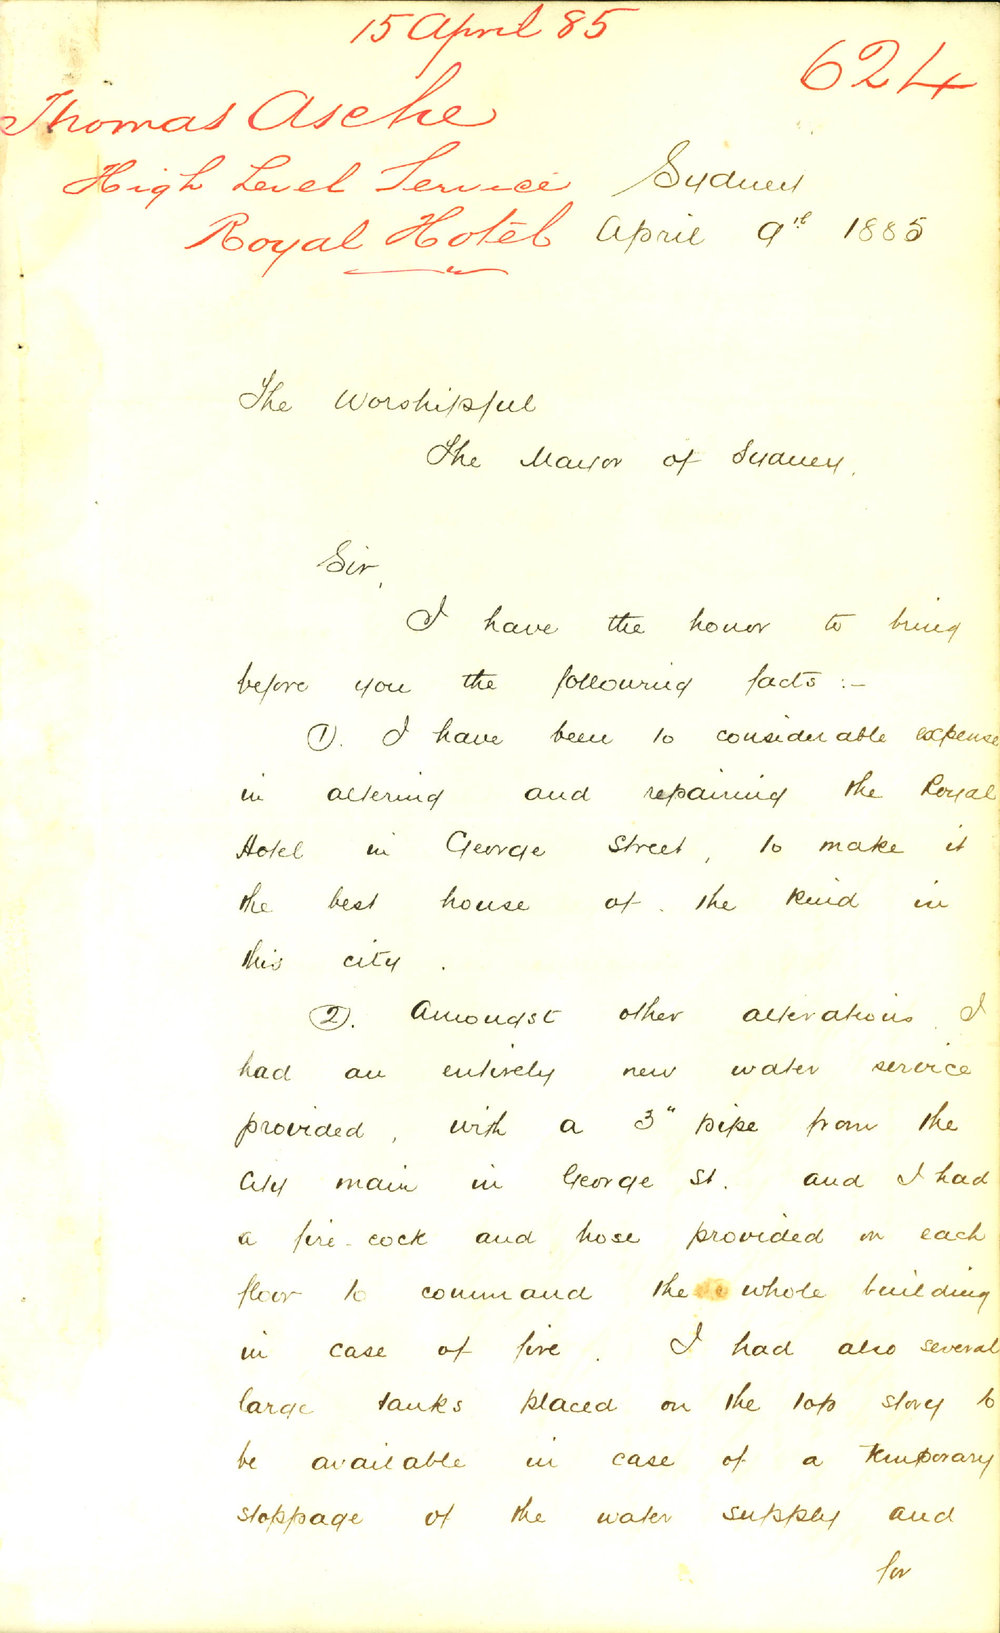 15 April 85
624
Thomas Asche
High Level Service
Royal Hotel
Sydney
April 9th 1885
The Worshipful
The Mayor of Sydney.
Sir,
I have the honor to bring
before you the following facts :-
(1). I have been to considerable expense
in altering and repairing the Royal
Hotel in George Street, to make it
the best house of the kind in
this city.
(2). Amongst other alterations I
had an entirely new water service
provided, with a 3" pipe from the
City main in George St. and I had
a fire-cock and hose provided on each
floor to command the whole building
in case of fire. I had also several
large tanks placed on the top story to
be available in case of a temporary
stoppage of the water supply and
for